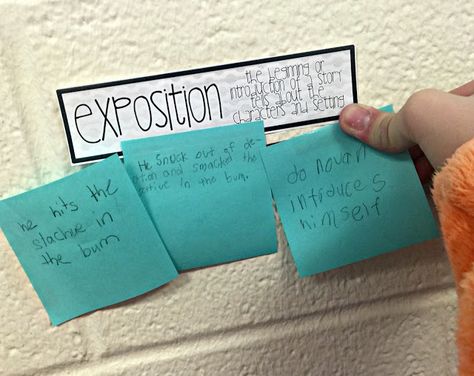 exposition
the beginning or
introduction of a story
tells about the
characters and setting
he hits the
stachue in
the bum
He snuck out of de-
and smacked the
in the bum.
do novan
introduces
himself